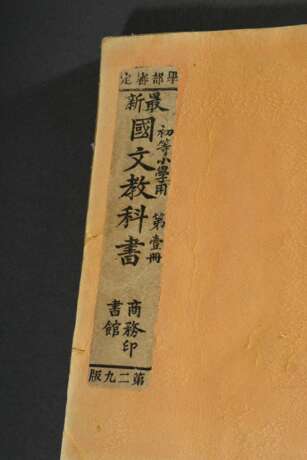 學部審定
最新
國文教科書
初等小學用
第壹冊
商務印
書館
第二九版